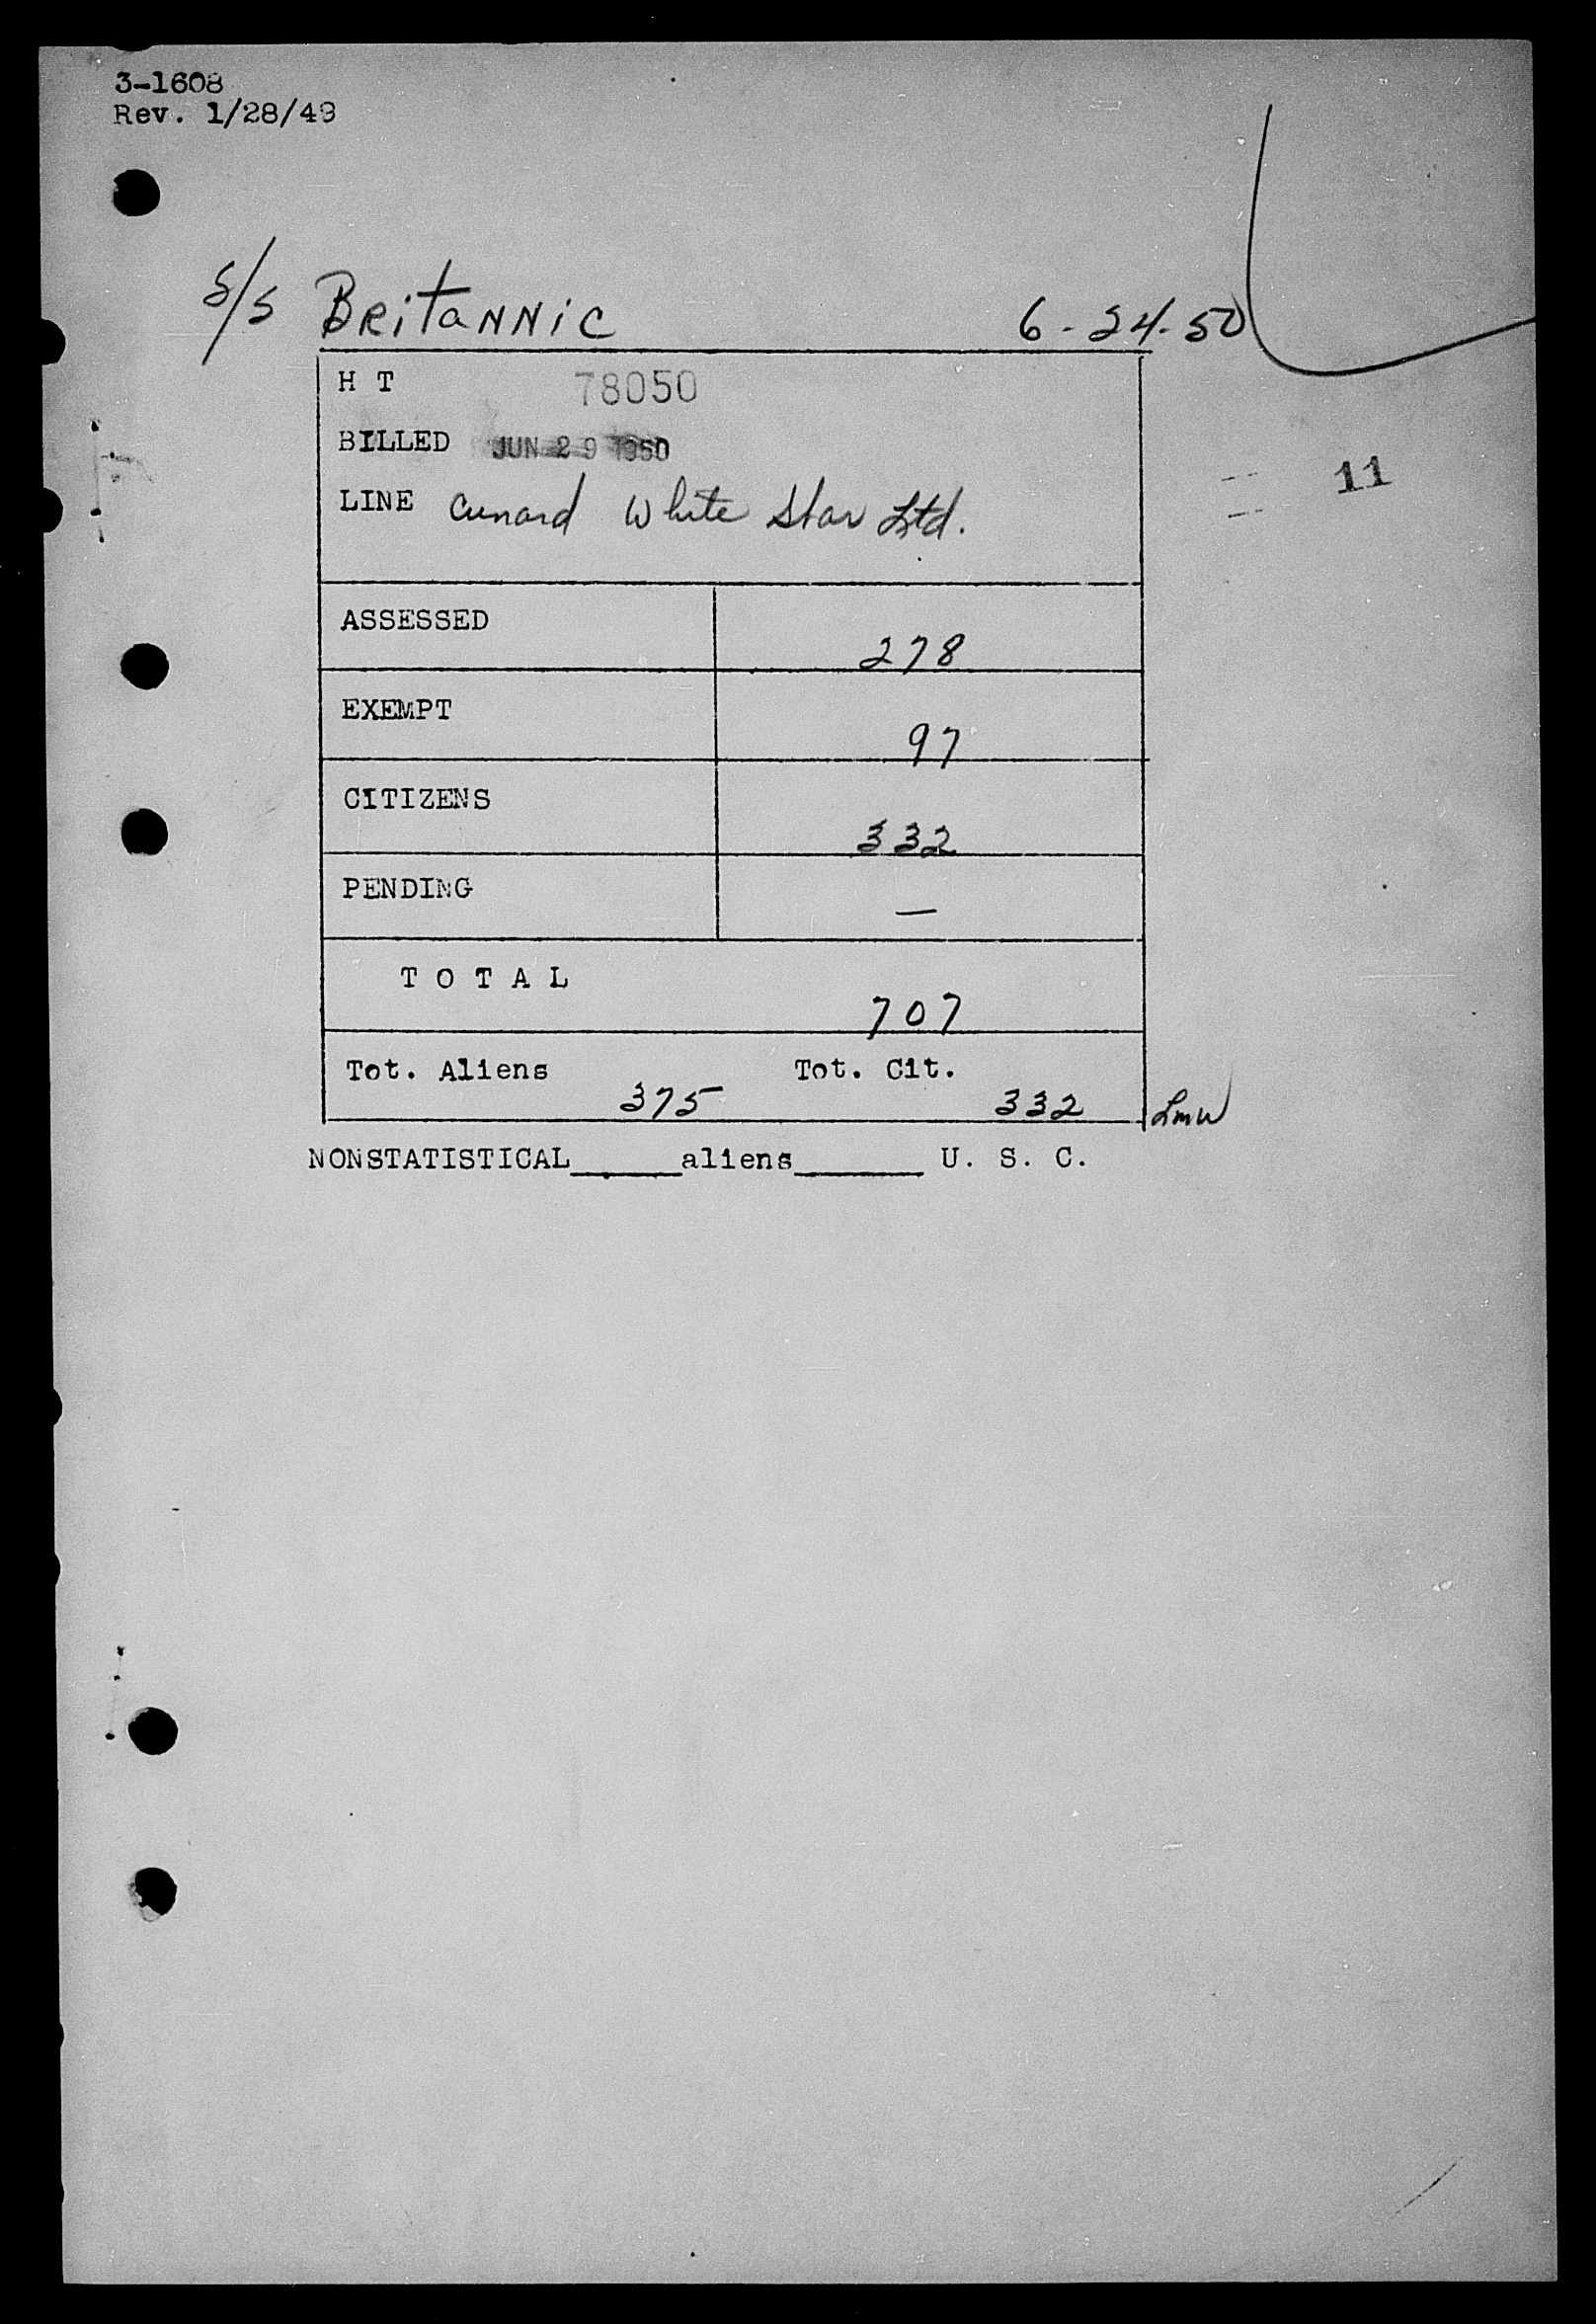 3-1608
Rev. 1/28/49
S/S Britannic 6-24-50
H T 78050
BILLED JUN 29 1950
LINE Cunard White Star Ltd.
11
ASSESSED 278
EXEMPT 97
CITIZENS 332
PENDING —
T O T A L 707
Tot. Aliens 375 Tot. Cit. 332 Lmw
NONSTATISTICAL______aliens_______ U. S. C.